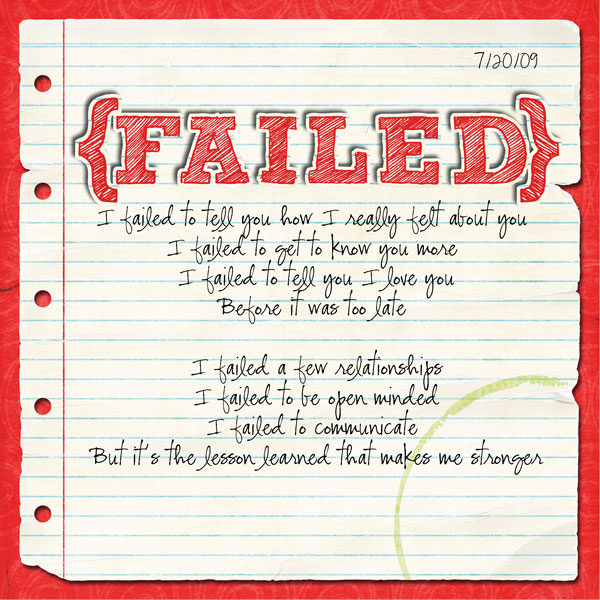 7/20/09
{FAILED}
I failed to tell you how I really felt about you
I failed to get to know you more
I failed to tell you I love you
Before it was too late
I failed a few relationships
I failed to be open minded
I failed to communicate
But it's the lesson learned that makes me stronger